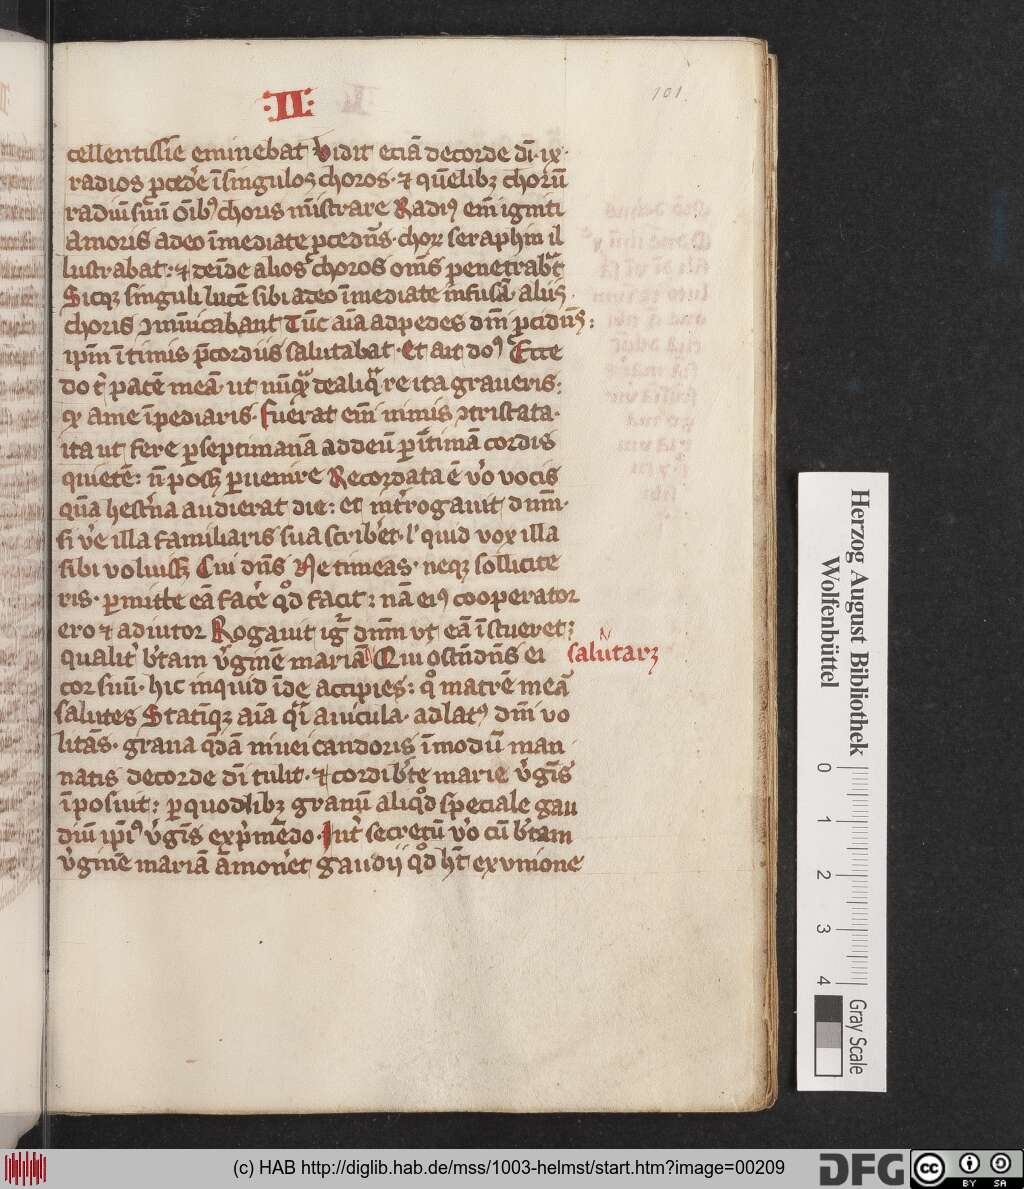 :II:
101
cellentissīe eminebat Vidit eciā de corde dn̄i · ix ·
radios ꝓcedē̓ ī singulos choros · ⁊ quēlibꝫ chorū
radiū suū oīb⁹ choris mīstrare Radi⁹ em̄ igniti
amoris adeo īmediate ꝓcedēs · choꝝ seraphin il
lustrabat : ⁊ deīde alios choros om̄s penetrabat
Sicqꝫ singuli lucē sibi a deo īmediate infusā · aliis
choris ꝯmūicabant Tūc aīa ad pedes dn̄i ꝓcidēs :
ip̄m ītimis p̄cordiis salutabat · Et ait do⁹ Ecce
do t̓ pacē meā · ut nūqȝ de aliqȝ re ita graueris :
qꝫ a me īpediaris · fuerat em̄ nimis ꝯtristata ·
ita ut fere ꝑ septimanā ad deū ꝑ ītimā cordis
quietē : n̄ posꝫ ꝑuenire Recordata ē v̓o vocis
quā hest̓na audierat die : et int̓rogauit dnm̄ ·
si v̓e illa familiaris sua scrib̓et · l̓ quid vox illa
sibi voluissꝫ Cui dn̄s Ne timeas · neqꝫ sollicite
ris · ꝑmitte eā facē̓ qͦd facit : nā ei⁹ cooperator
ero ⁊ adiutor Rogauit igr̄ dnm̄ vt eā īstrueret ;
qualit̓ b̓tam v̓ginē mariā Qui ostn̄dēs ei salutarꝫ
cor suū · hic inquid īde accipies : qͦ matrē meā
salutes Statīqꝫ aīa qͣi auicula · ad lat⁹ dn̄i vo
litās · grana qͣdā niuei candoris ī modū man
natis de corde dn̄i tulit · ⁊ cordi b̓te marie v̓gīs
īposuit : ꝑ quodlibꝫ granū aliqͦd speciale gau
diū ip̄i⁹ v̓gīs exp̓mēdo · Int̓ secretū v̓o cū b̓tam
v̓ginē mariā āmon̓et gaudij qͦd ht̄ ex vnione
Herzog August Bibliothek
Wolfenbüttel
0 1 2 3 4
Gray Scale
(c) HAB http://diglib.hab.de/mss/1003-helmst/start.htm?image=00209
DFG
cc BY SA